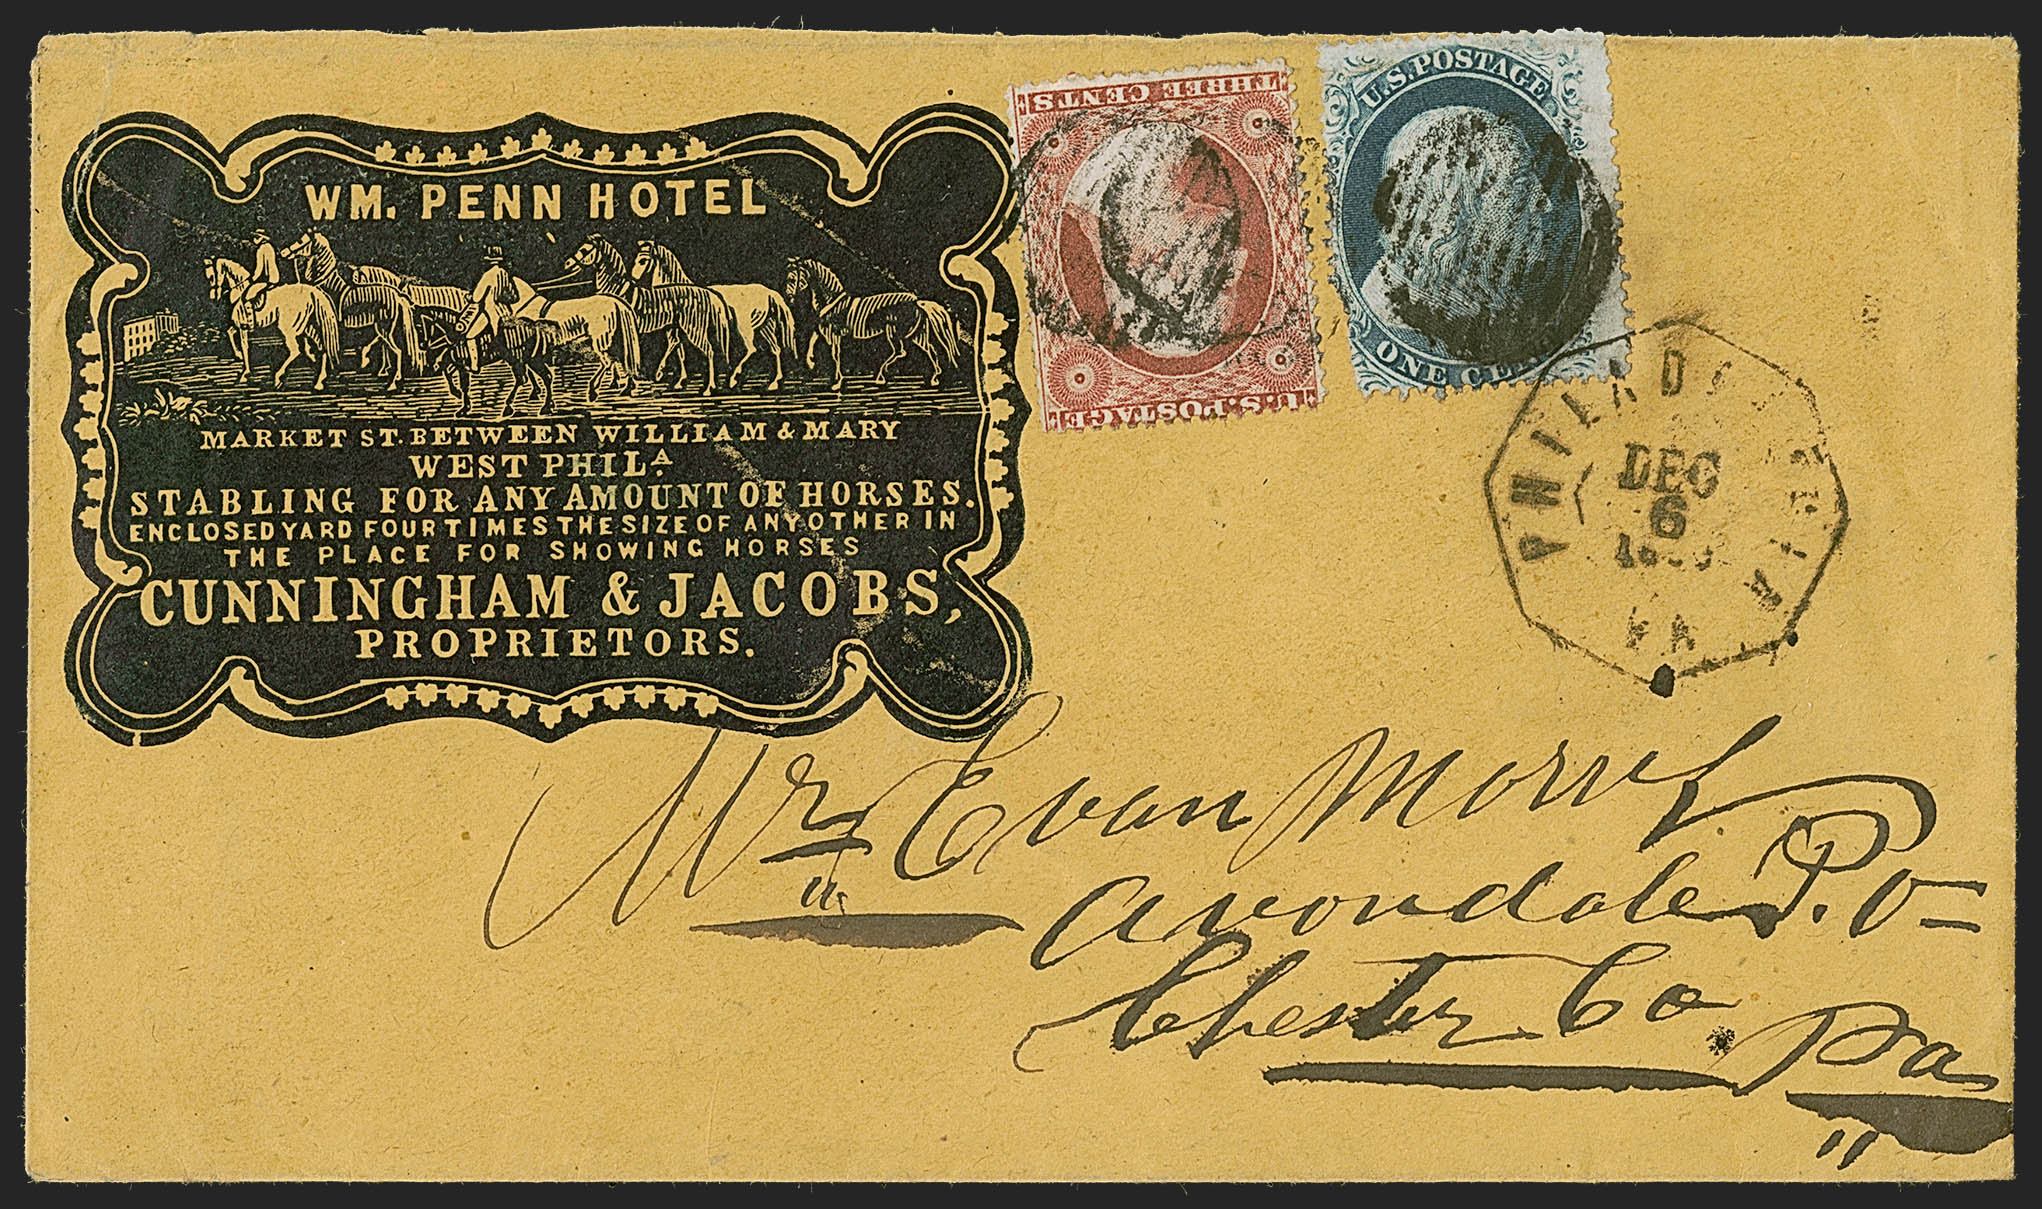 WM. PENN HOTEL
MARKET ST. BETWEEN WILLIAM & MARY
WEST PHILA.
STABLING FOR ANY AMOUNT OF HORSES.
ENCLOSED YARD FOUR TIMES THE SIZE OF ANY OTHER IN
THE PLACE FOR SHOWING HORSES
CUNNINGHAM & JACOBS,
PROPRIETORS.
THREE CENTS
U.S. POSTAGE
U.S. POSTAGE
ONE
PHILADELPHIA
DEC
6
PA
Mr Evan Morris
Avondale P.O
Chester Co
Pa